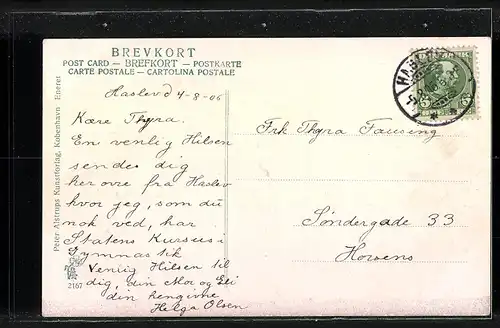 BREVKORT
POST CARD — BREFKORT — POSTKARTE
CARTE POSTALE — CARTOLINA POSTALE
Haslev d 4-8-06
Kære Thyra.
En venlig Hilsen
sendes dig
her ovre fra Haslev
hvor jeg, som du
nok ved, har
Statens Kursus i
Gymnastik
Venlig Hilsen til
dig, din Mor og Eli
din hengivne
Helga Olsen
Peter Alstrups Kunstforlag, Kobenhavn Eneret
2167
HASLEV
5 5
Frk Thyra Fausing
Søndergade 33
Horsens